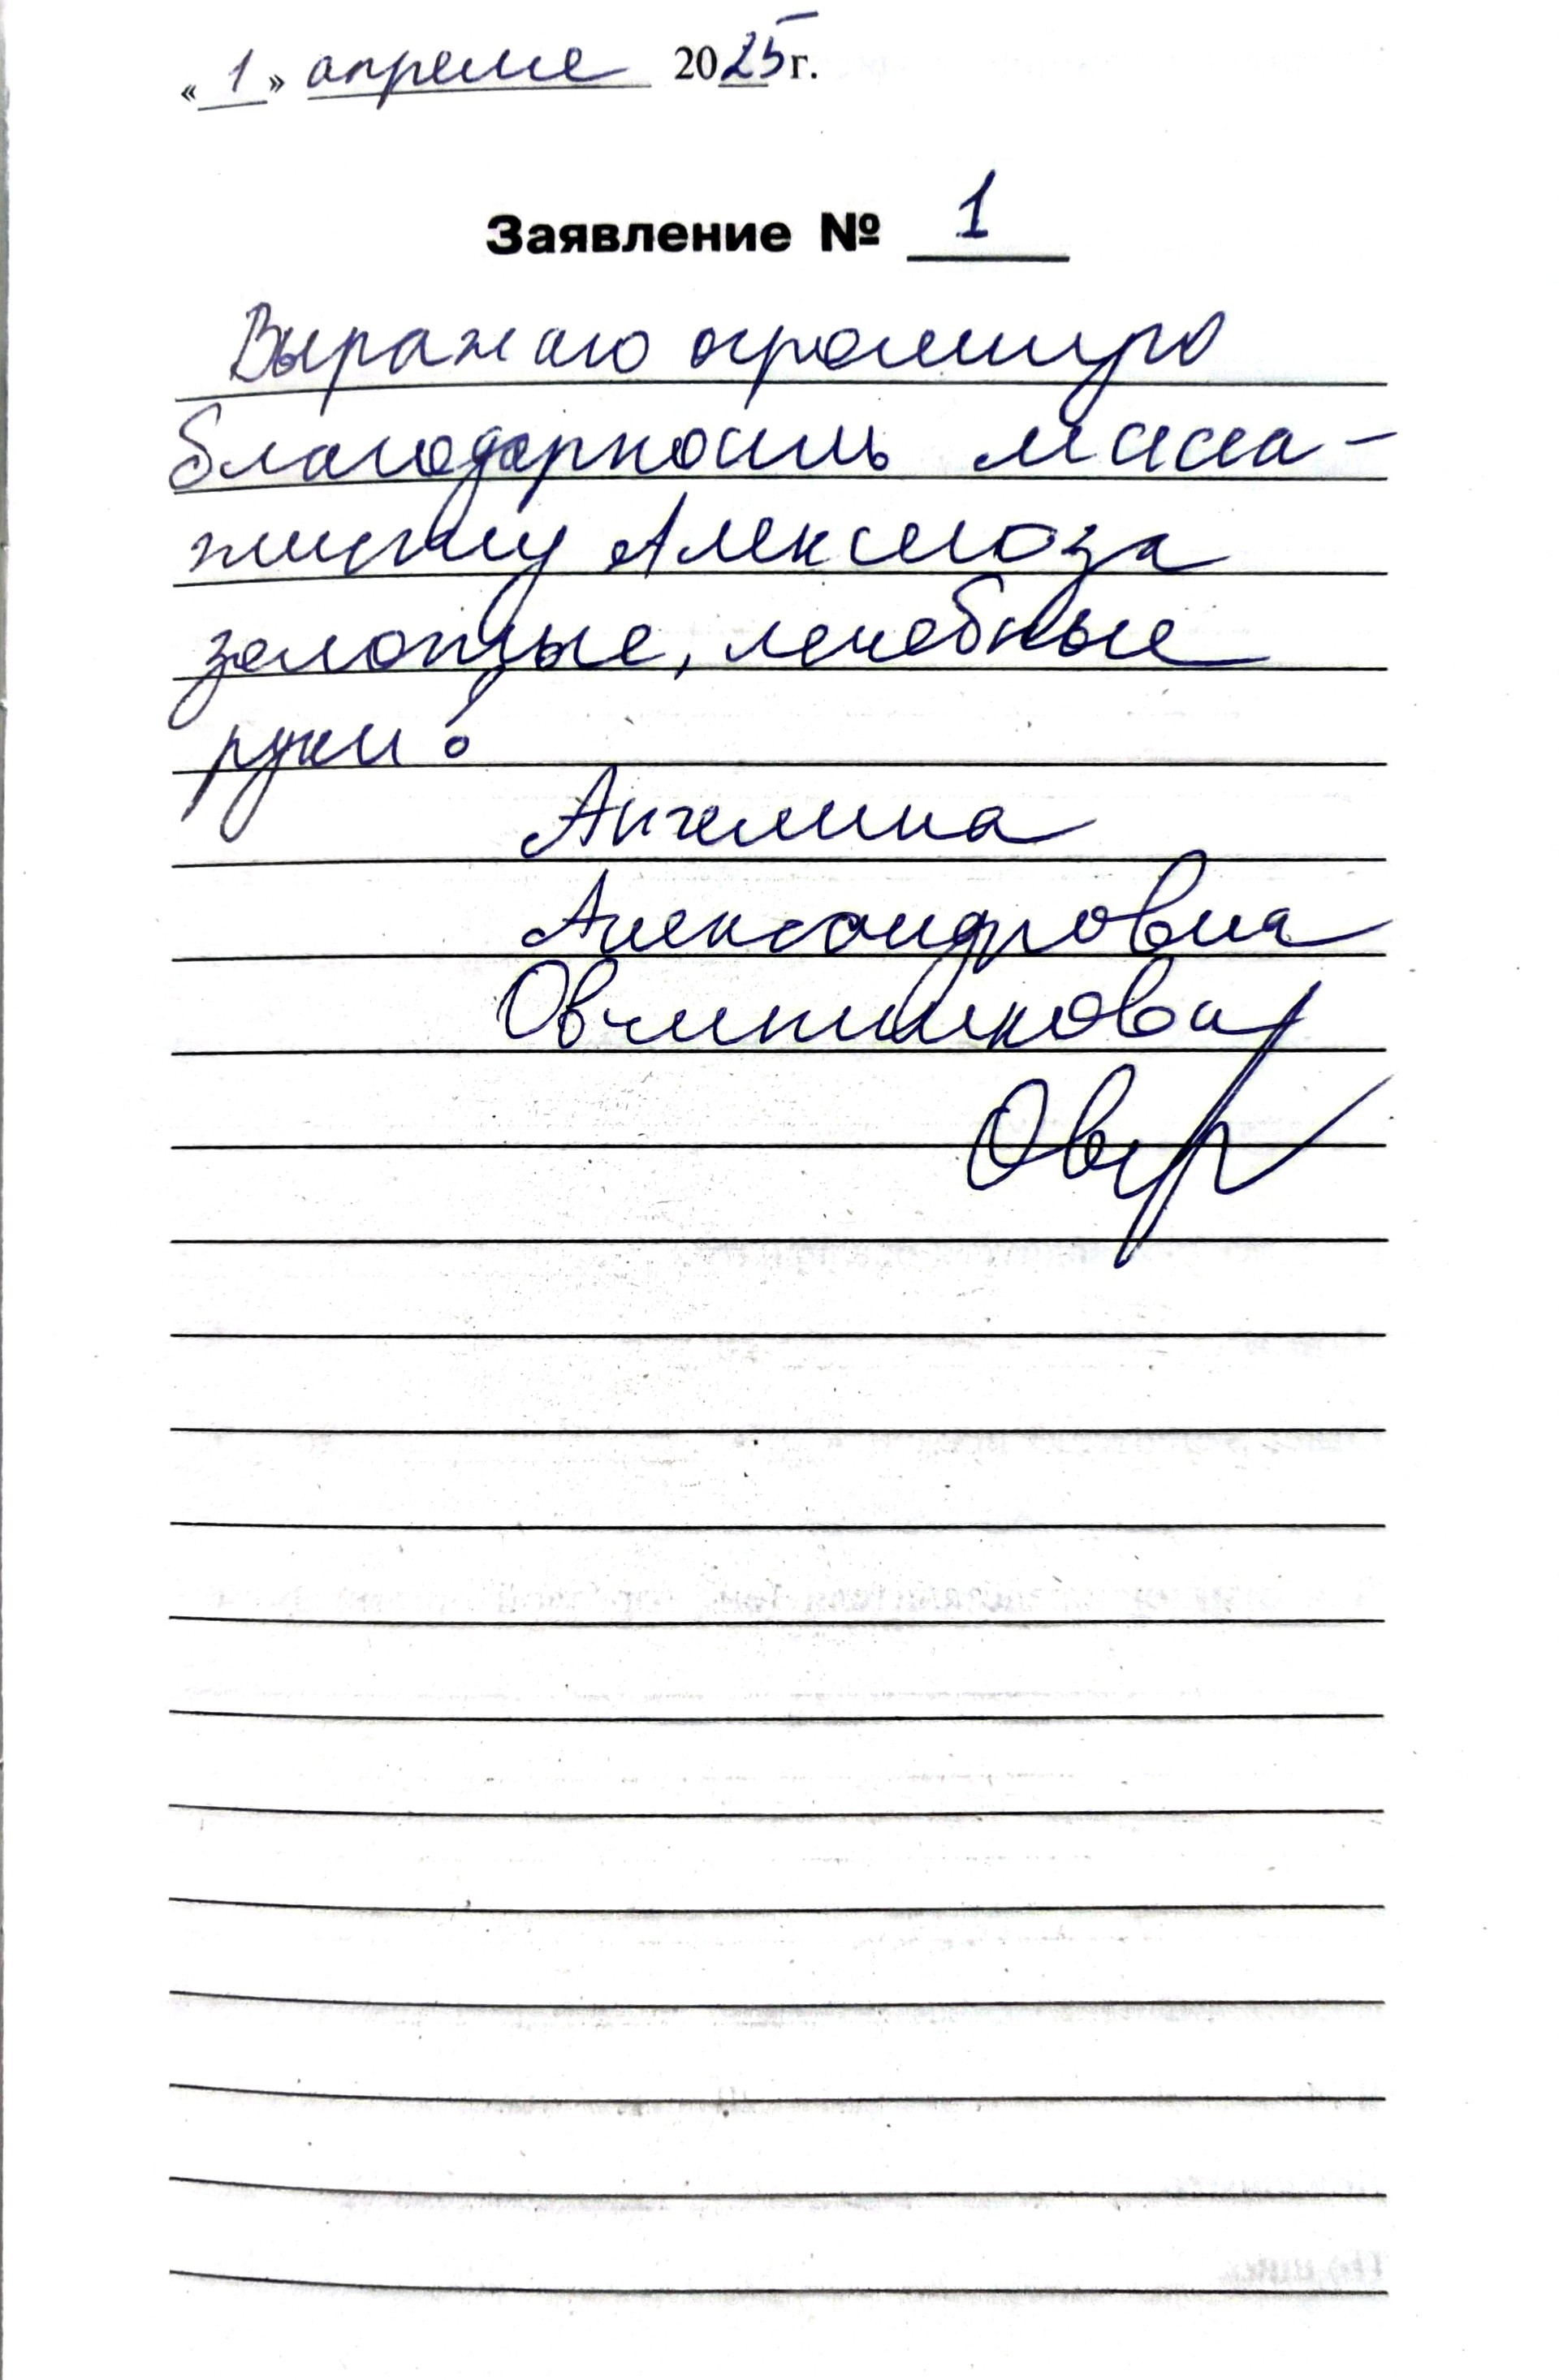 «1» апреля 2025г.
Заявление № 1
Выражаю огромную
благодарность масса-
жисту Алексею за
золотые, лечебные
руки!
Ангелина
Александровна
Овчинникова